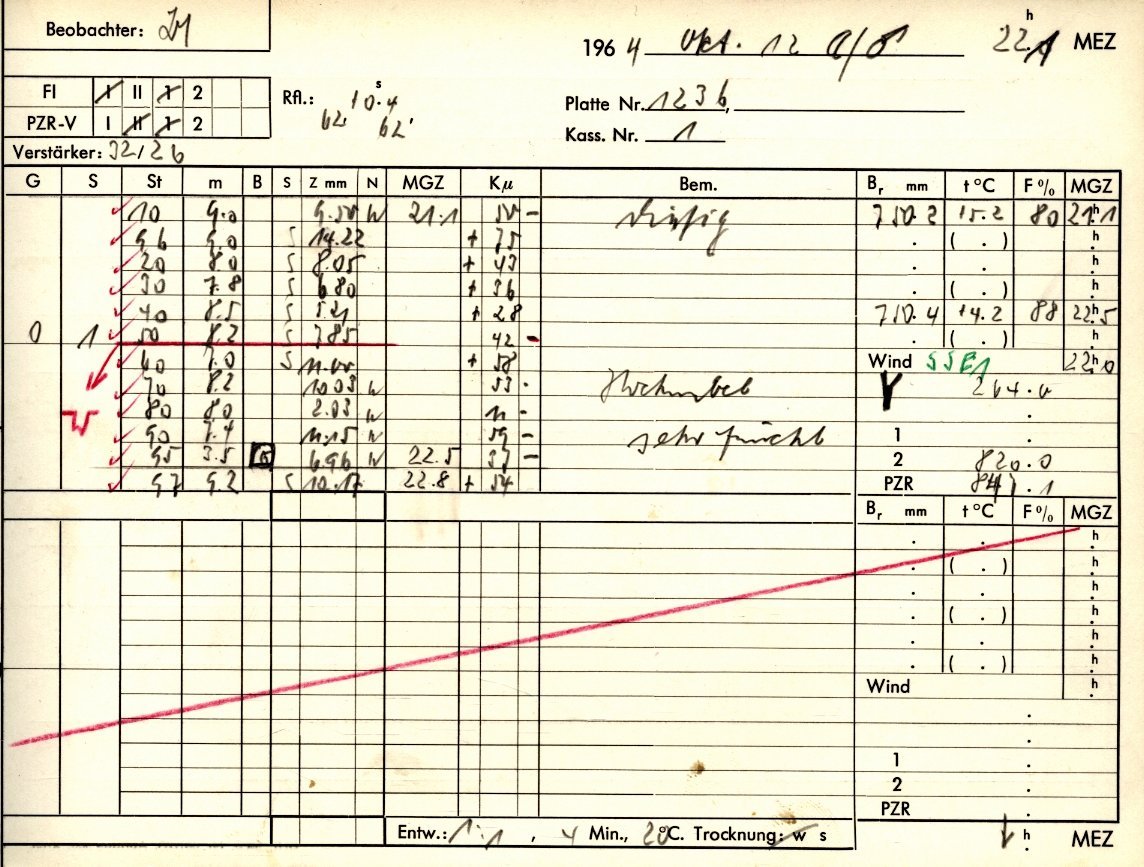 Beobachter:
1964 Okt. 12 22.1 h MEZ
FI I II 1 2
PZR-V I II 1 2
Rfl.: 10.4 s
62 62
Platte Nr. 1236,
Kass. Nr. 1
Verstärker: 32/26
G S St m B S Z mm N MGZ Kμ Bem. Br mm t °C F % MGZ
10 9.0 9.50 W 21.1 50 - diesig 750.2 +5.2 80 21.1 h
96 9.0 S 14.22 + 75 . ( . ) h
20 8.0 S 8.05 + 43 . . h
30 7.8 S 6.80 + 36 . ( . ) h
40 8.5 S 5.21 + 28 750.4 +4.2 88 22.5 h
0 1 50 8.2 S 7.85 42 - . ( . ) h
60 7.0 S 11.00 + 58 Wind SSE1 22.0 h
70 8.2 10.03 W 53 - Hochnebel 264.0
W 80 8.0 2.03 W 11 - .
90 7.4 11.15 W 59 - sehr feucht 1 .
95 3.5 B 6.96 W 22.5 37 - 2 820.0
97 9.2 S 10.17 22.8 + 54 PZR 847.1
Br mm t °C F % MGZ
. . h
. ( . ) h
. . h
. ( . ) h
. . h
. ( . ) h
Wind h
.
.
1 .
2 .
PZR .
Entw.: 1:1, 4 Min., 20°C. Trocknung: w s h MEZ